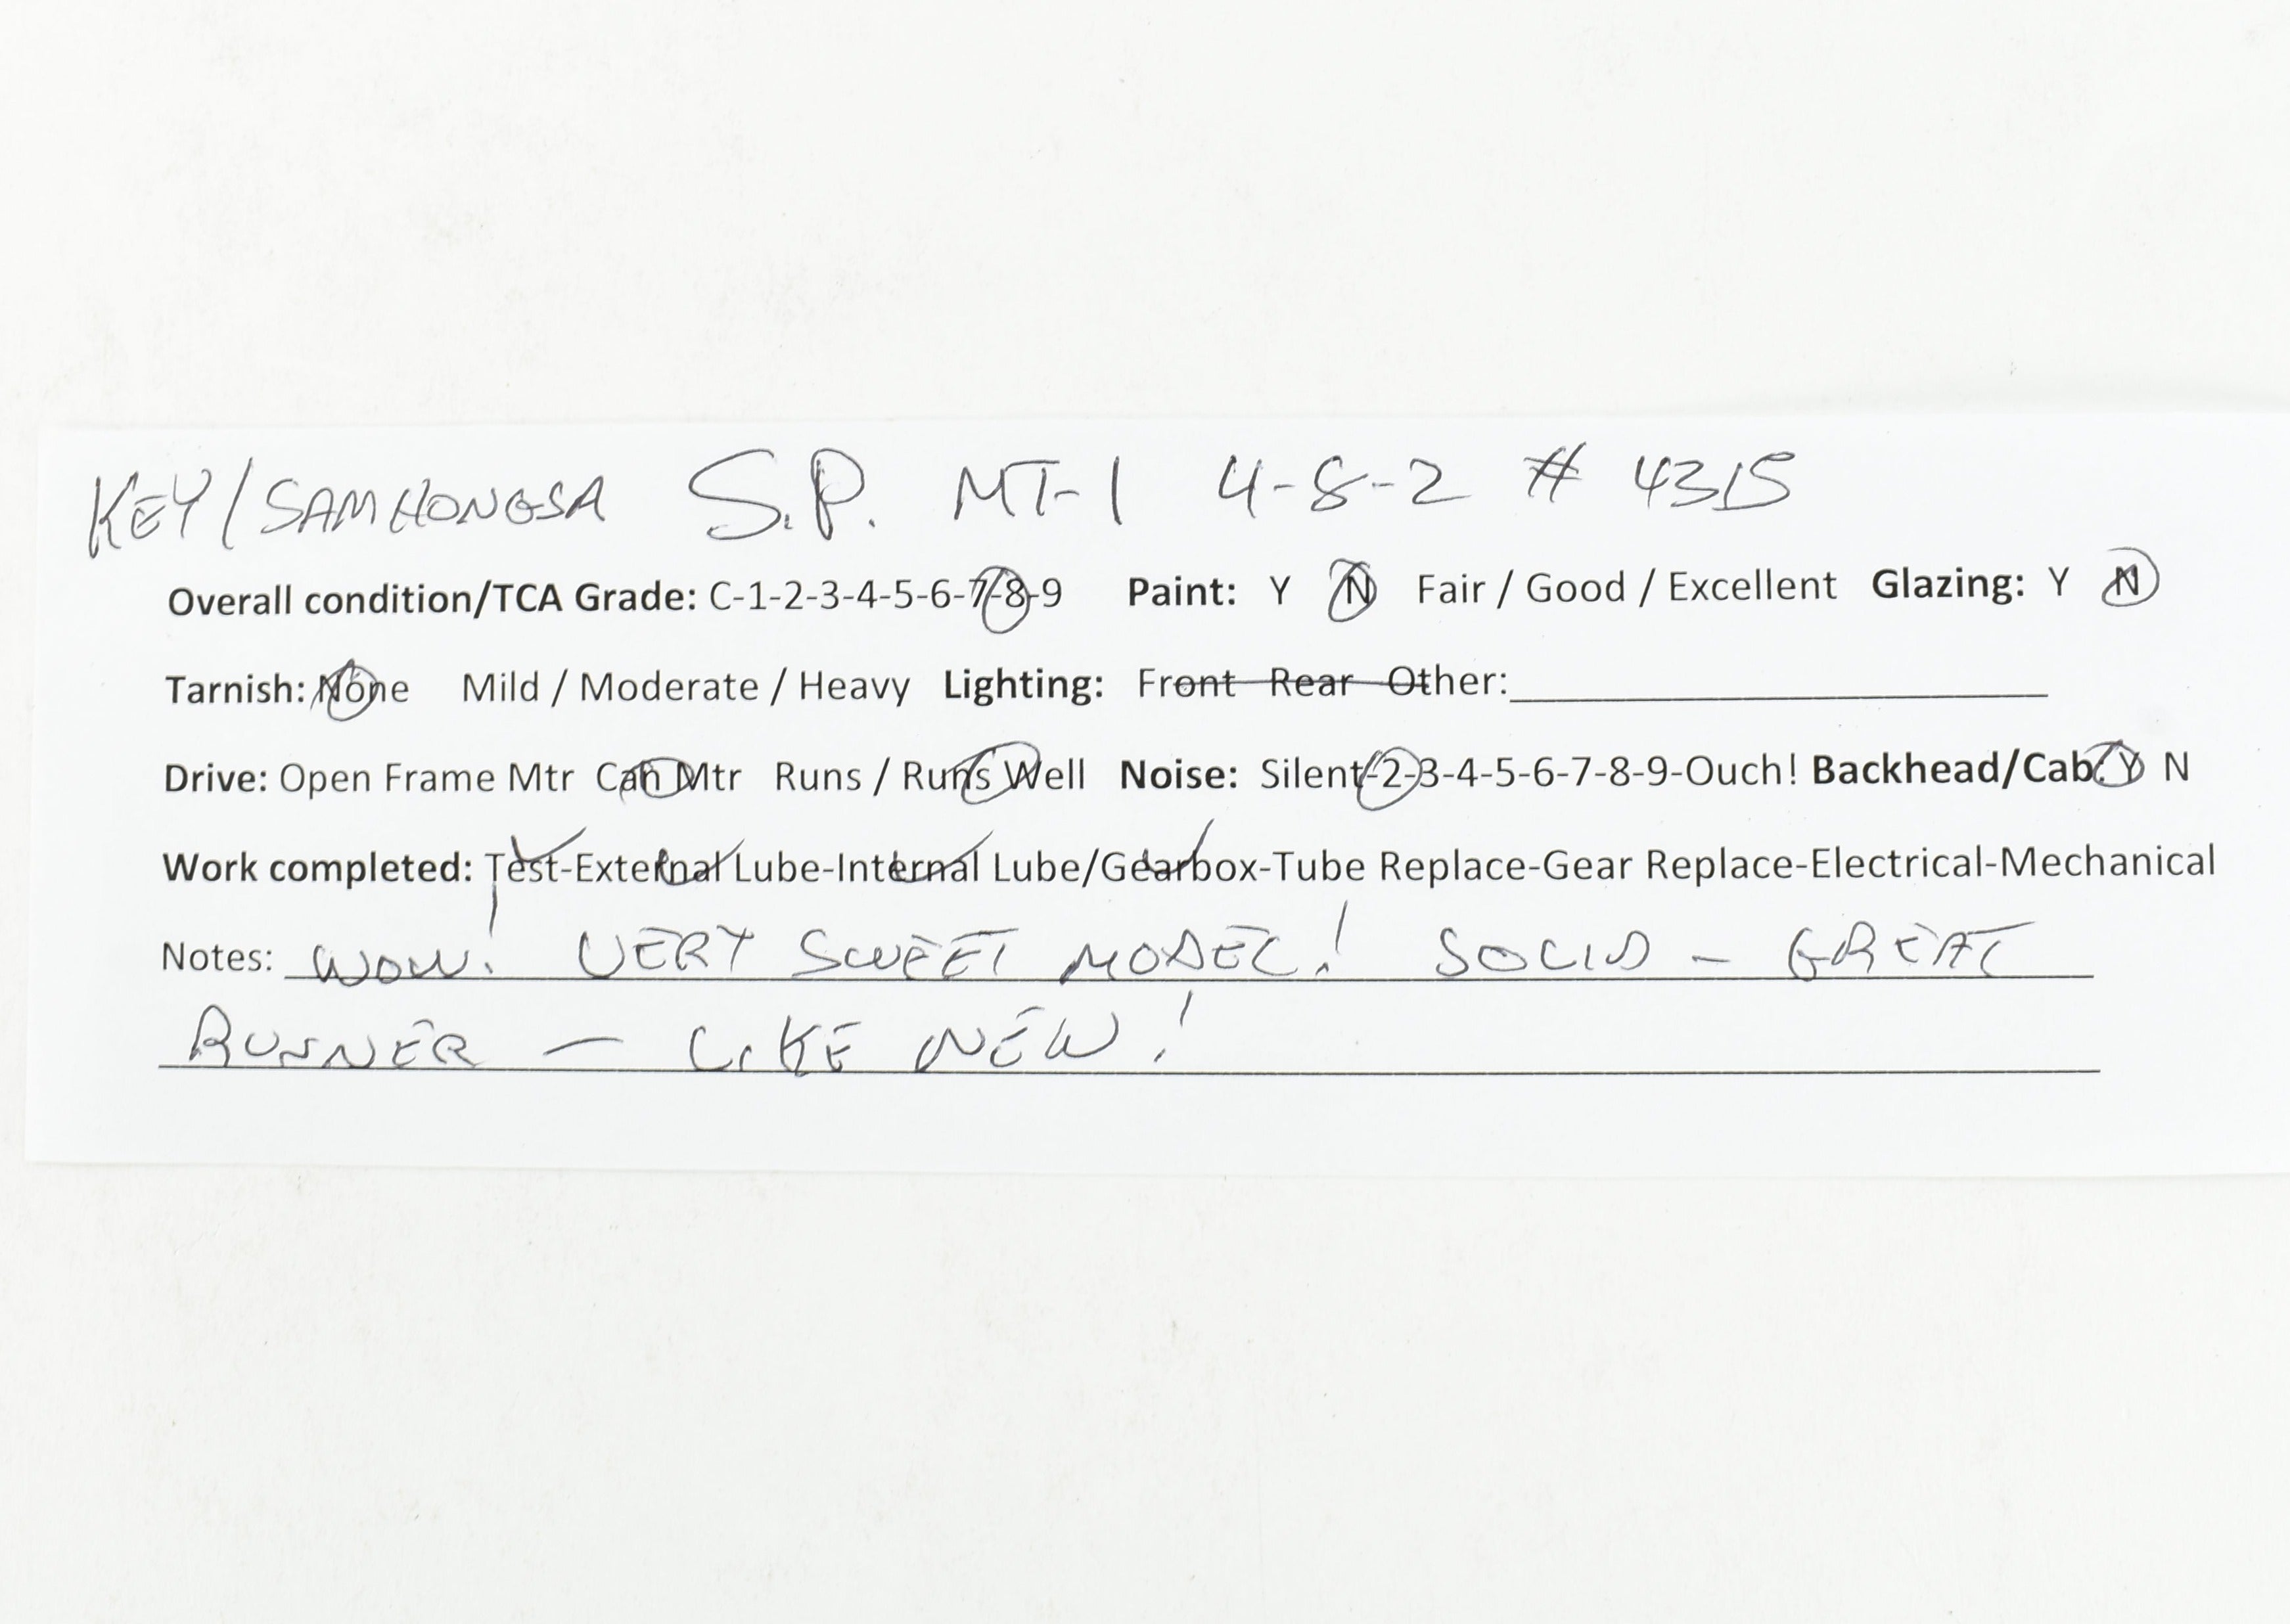 KEY/SAMHONGSA S.P. MT-1 4-8-2 # 4315
Overall condition/TCA Grade: C-1-2-3-4-5-6-7-8-9 Paint: Y N Fair / Good / Excellent Glazing: Y N
Tarnish: None Mild / Moderate / Heavy Lighting: Front Rear Other:
Drive: Open Frame Mtr Can Mtr Runs / Runs Well Noise: Silent-2-3-4-5-6-7-8-9-Ouch! Backhead/Cab: Y N
Work completed: Test-External Lube-Internal Lube/Gearbox-Tube Replace-Gear Replace-Electrical-Mechanical
Notes: WOW! VERY SWEET MODEL! SOLID - GREAT
RUNNER - LIKE NEW!